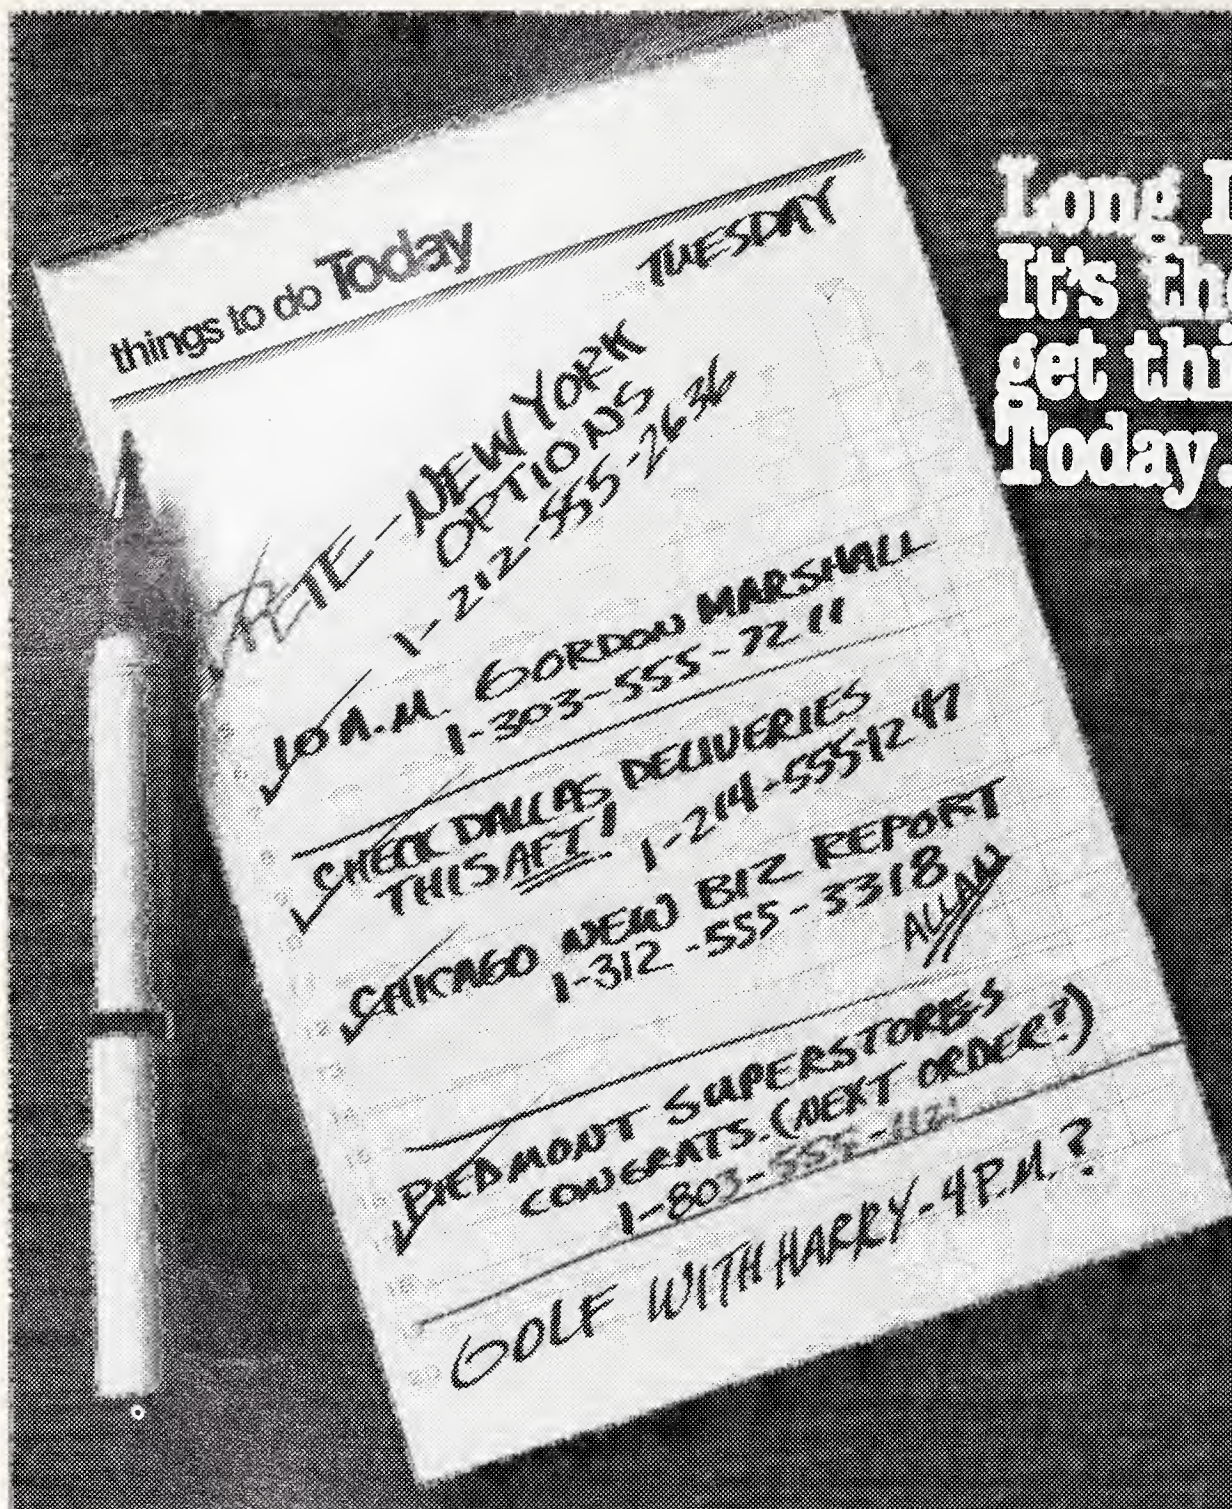 things to do Today
TUESDAY
PETE - NEW YORK
OPTIONS
1-212-555-2636
10 A.M. GORDON MARSHALL
1-303-555-7211
CHECK DALLAS DELIVERIES
THIS AFT! 1-214-555-1247
CHICAGO NEW BIZ REPORT
1-312-555-3318
ALLAN
PIEDMONT SUPERSTORES
CONGRATS. (NEXT ORDER?)
1-803-555-
GOLF WITH HARRY - 4 P.M.?
Long
It's the
get thi
Today.